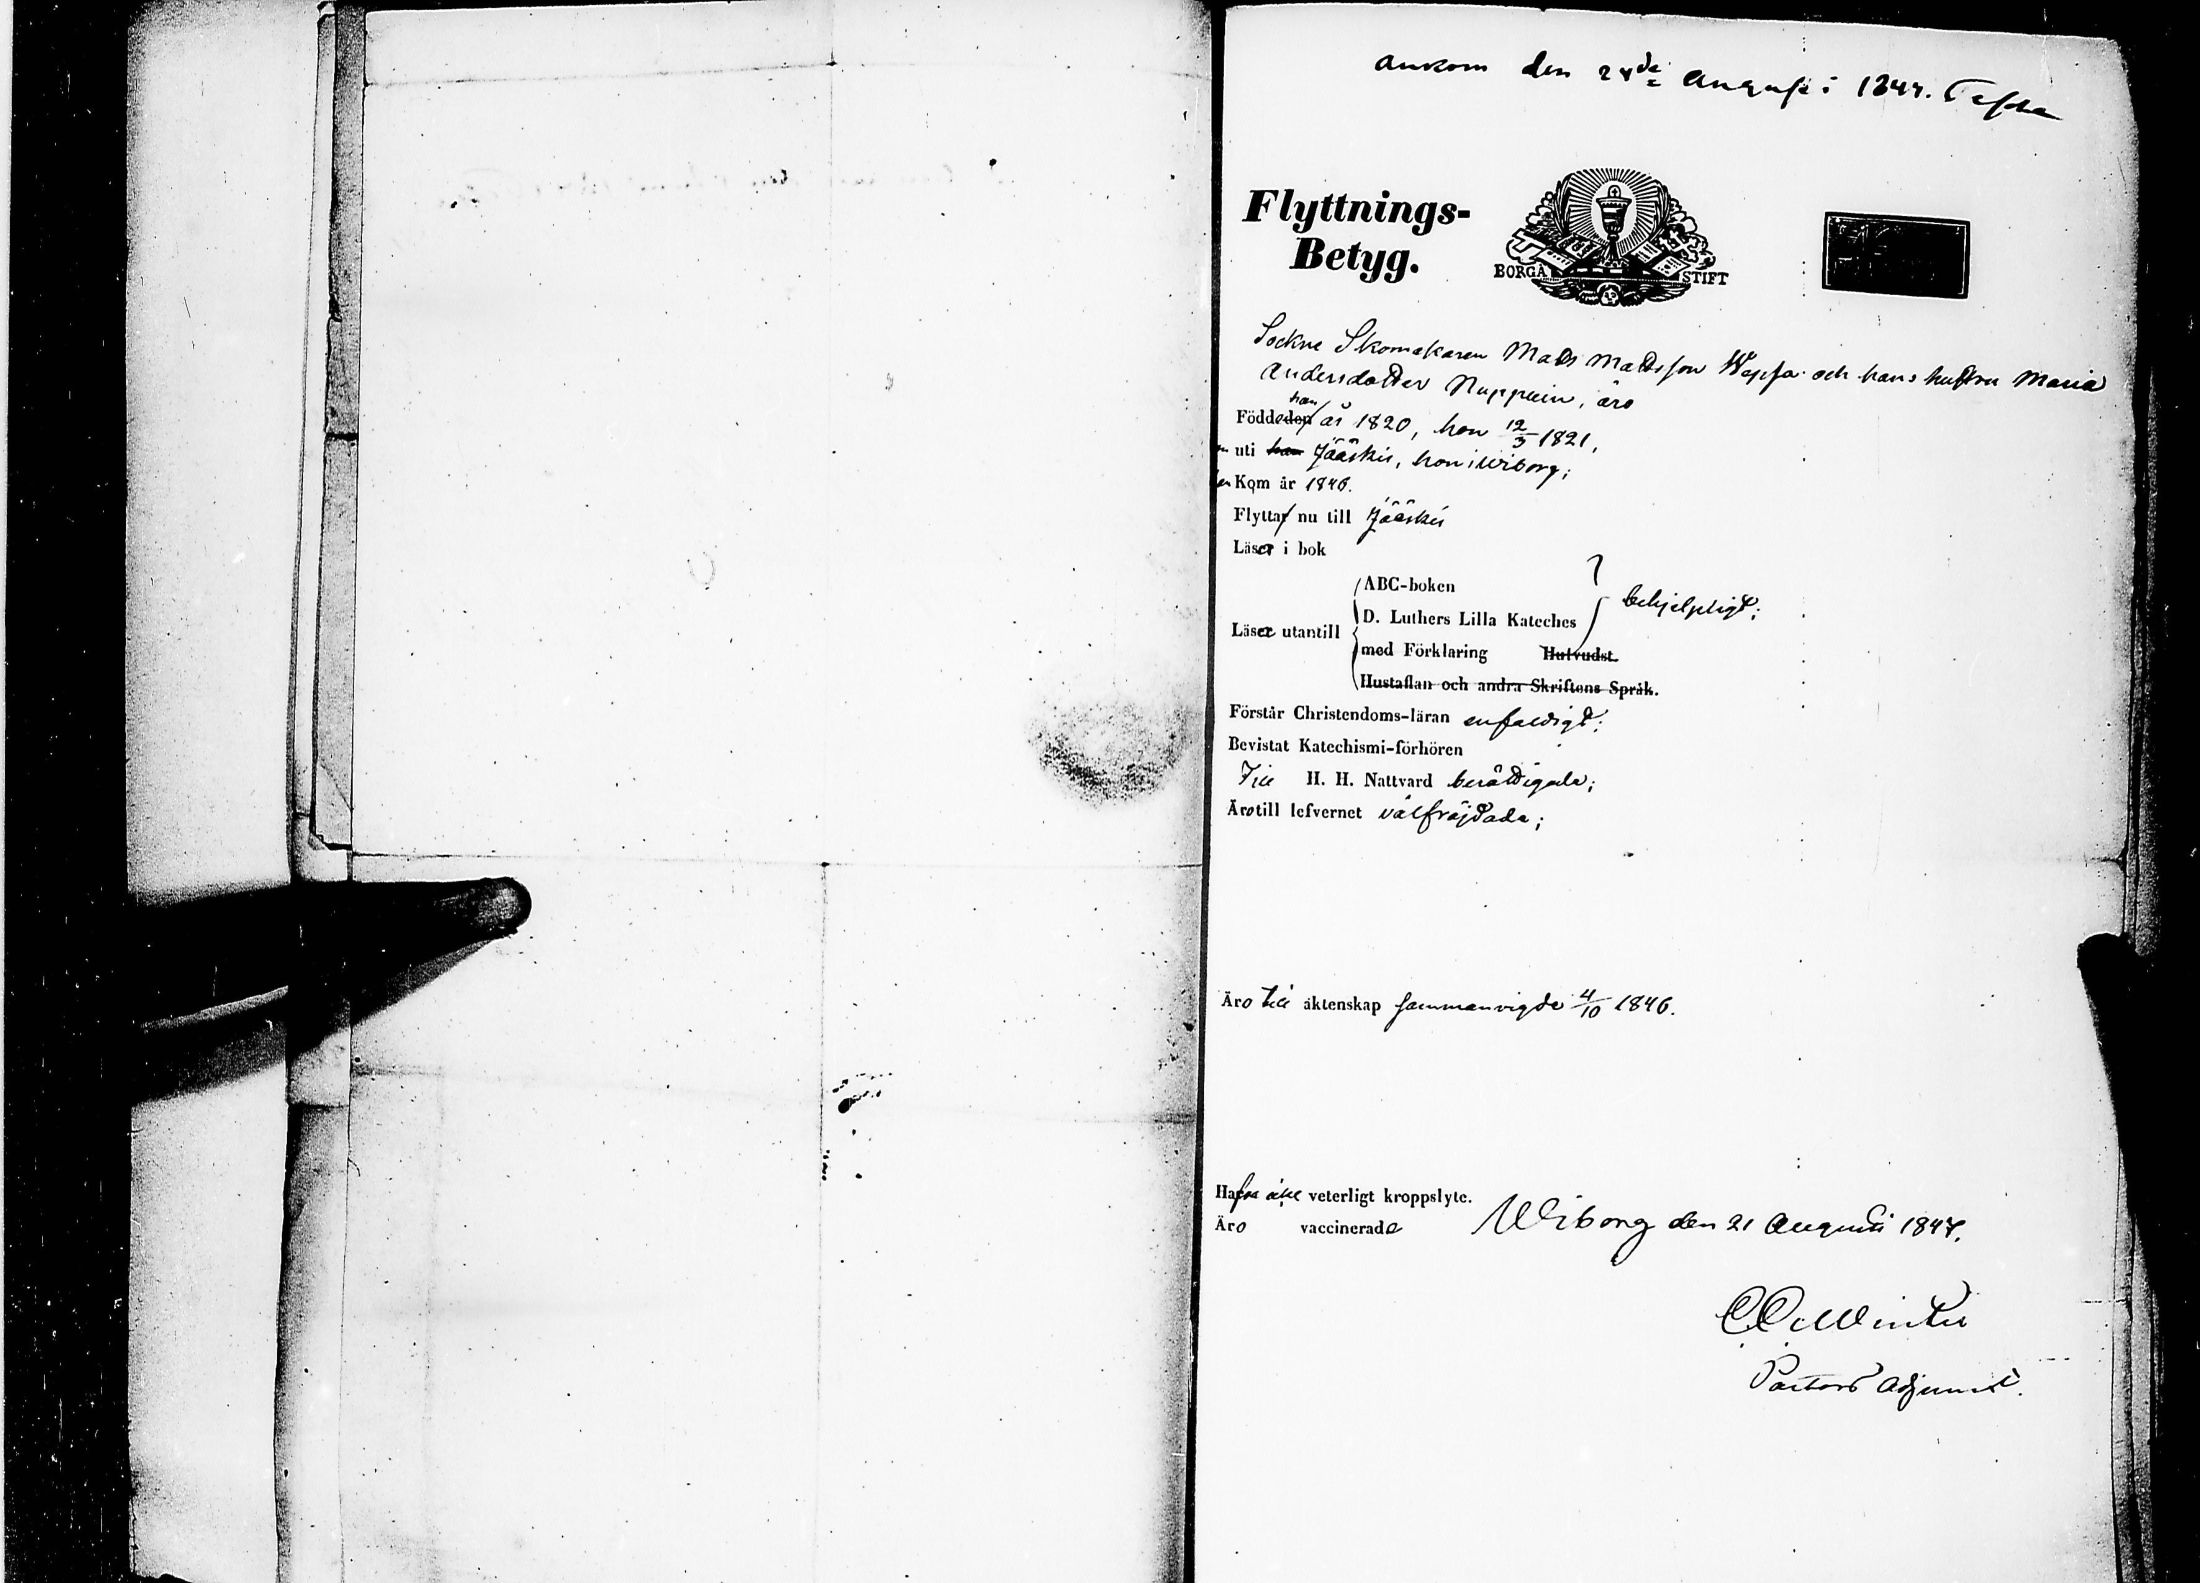 ankom den 28de Augusti 1847.
Flyttnings-
Betyg.
BORGÅ STIFT
Sockne Skomakaren Mats Mattsson Wepsa och hans hustru Maria
Andersdotter Nuppuin, äro
han
Födde den år 1820, hon 12/3 1821,
uti han Jääskis, hon i Wiborg;
Kom år 1846.
Flyttar nu till Jääskis
Läser i bok
ABC-boken
D. Luthers Lilla Kateches behjelpligt;
Läser utantill
med Förklaring Hufvudst.
Hustaflan och andra Skriftens Språk.
Förstår Christendoms-läran enfaldigt;
Bevistat Katechismi-förhören
Till H. H. Nattvard berättigade;
Äro till lefvernet välfräjdade;
Äro till äktenskap sammanvigde 4/10 1846.
Hafva icke veterligt kroppslyte.
Äro vaccinerade Wiborg den 21 Augusti 1847.
Winter
Pastors Adjunct.